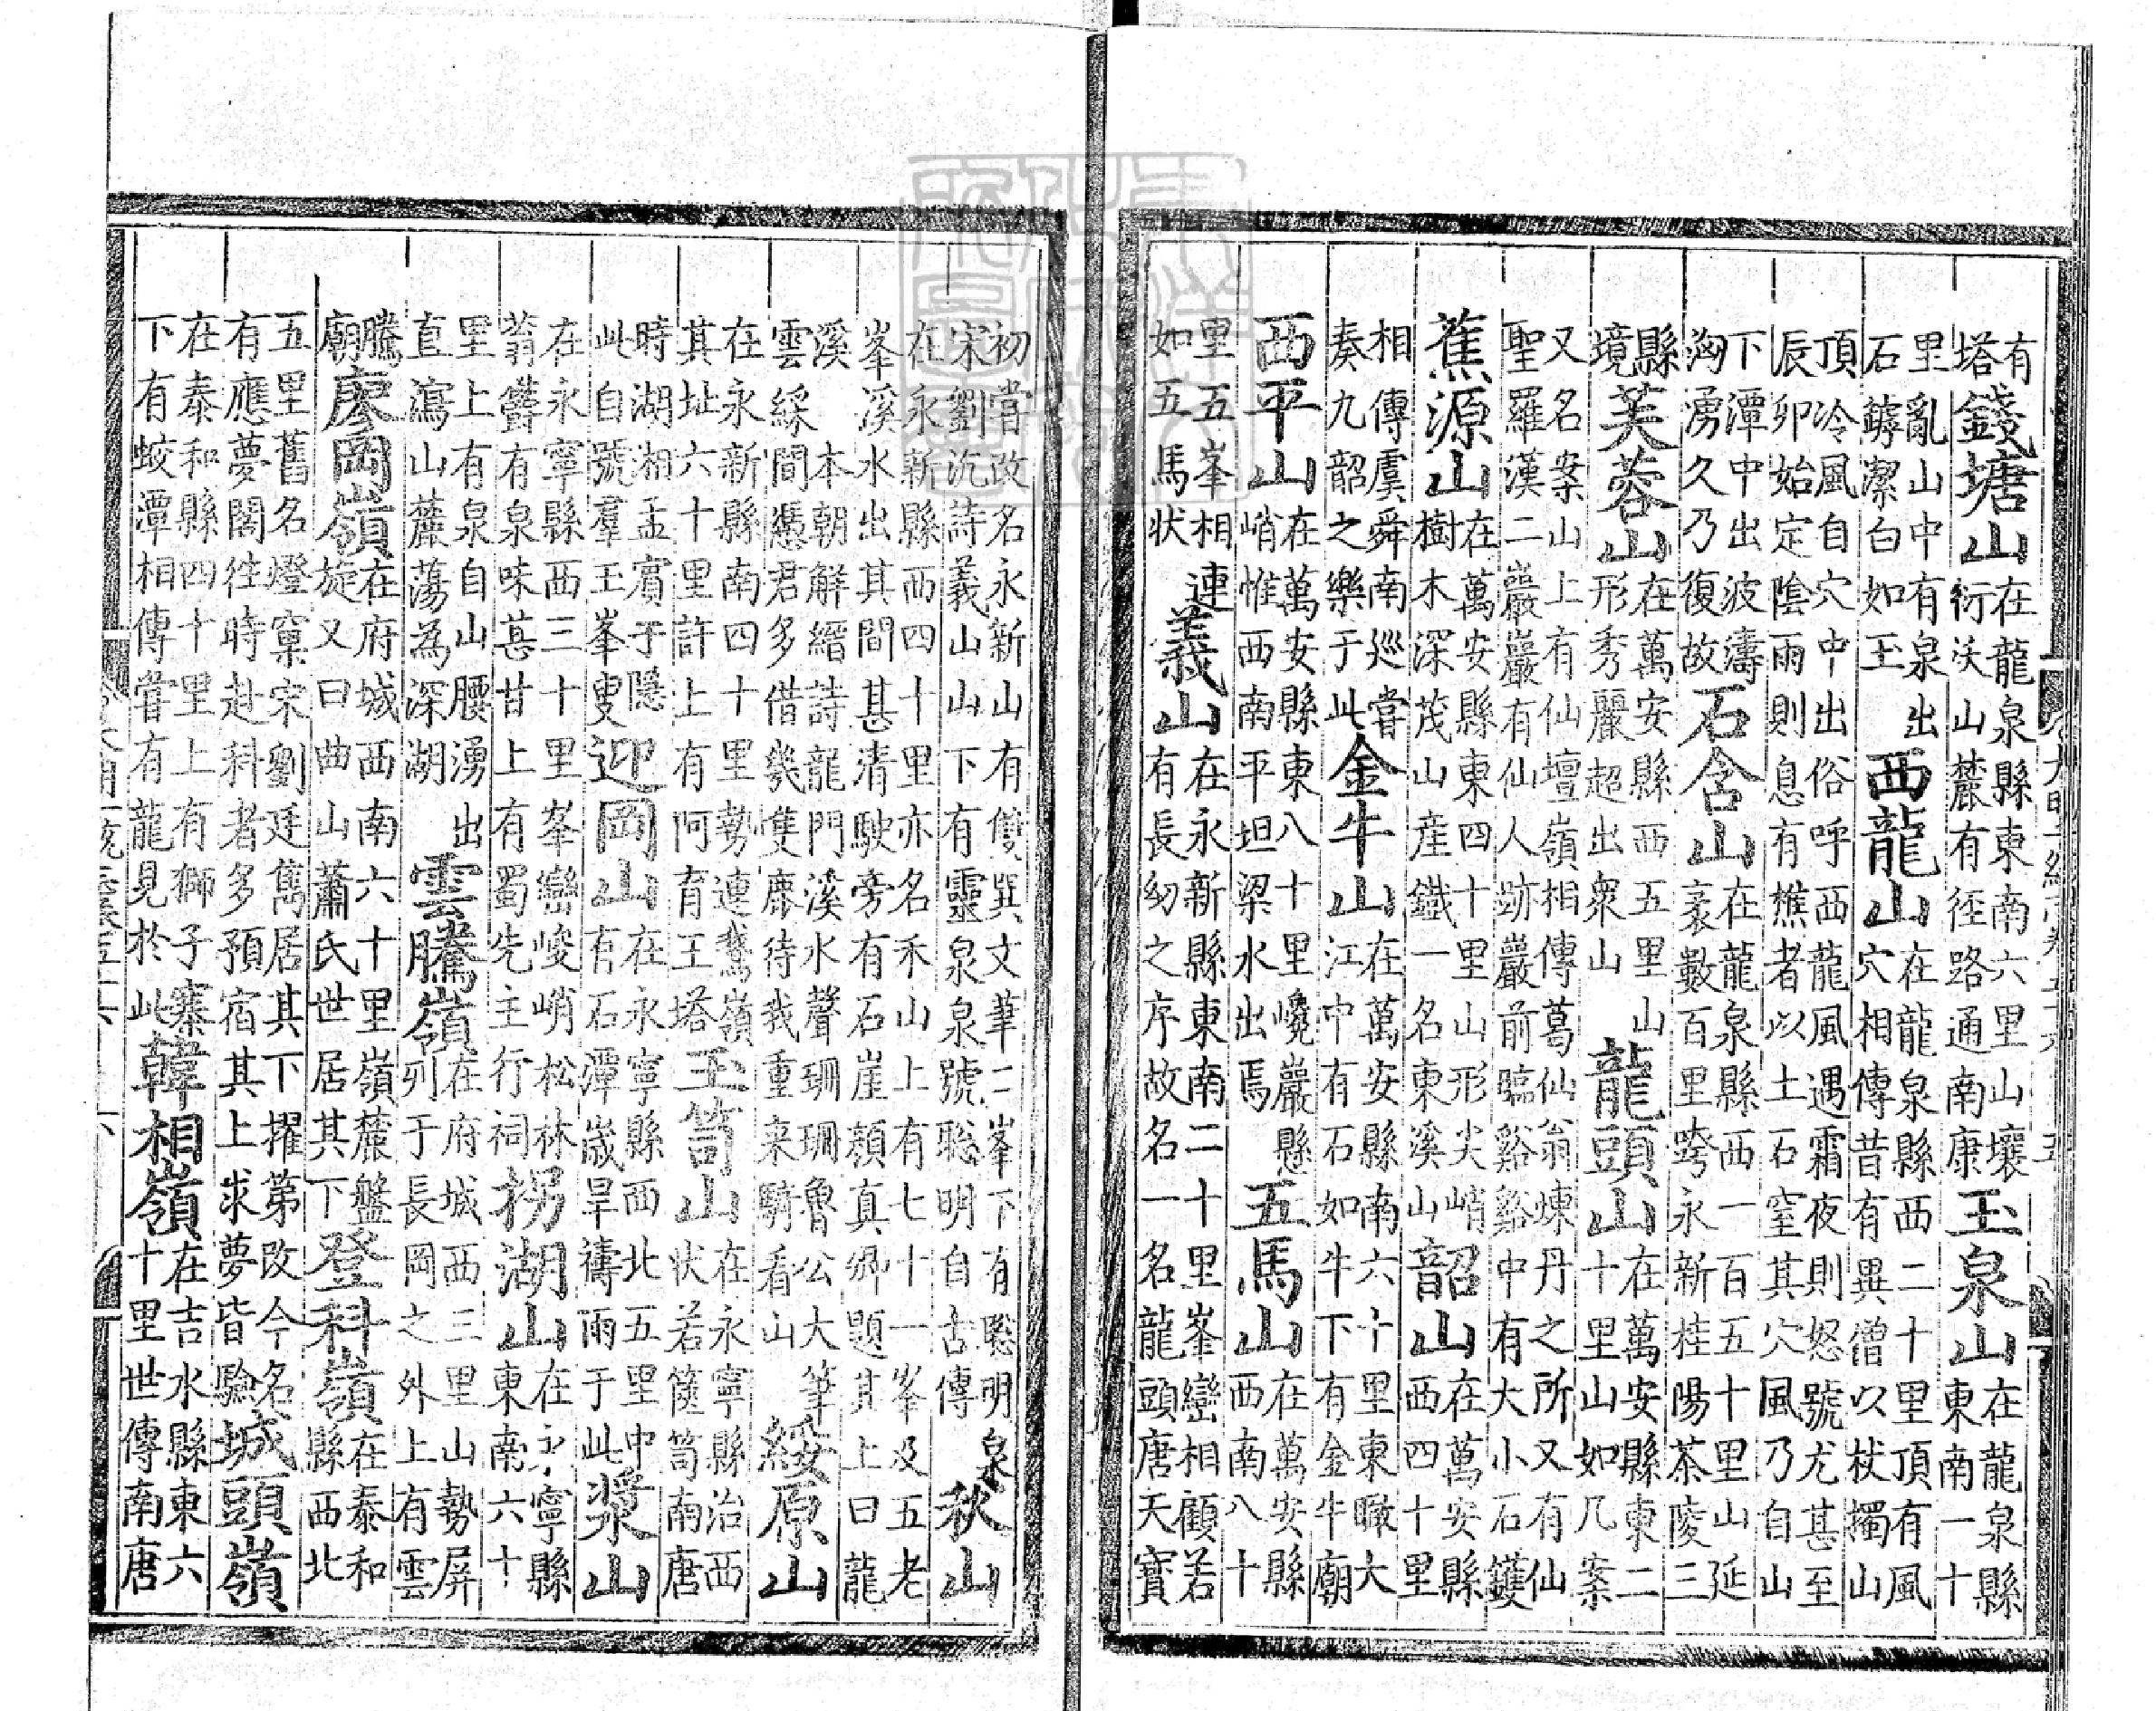 有塔錢塘山在龍泉縣東南六里山壤衍沃山麓有徑路通南康玉泉山在龍泉縣東南一十
里亂山中有泉出石鏬潔白如玉西龍山在龍泉縣西二十里頂有風穴相傳昔有異僧以杖擿山
頂冷風自穴中出俗呼西龍風遇霜夜則怒號尤甚至辰卯始定陰雨則息有樵者以土石窒其穴風乃自山
下潭中出波濤洶湧久乃復故石含山在龍泉縣西一百五十里山延袤數百里跨永新桂陽茶陵三
縣境芙蓉山在萬安縣西五里山形秀麗超出衆山龍頭山在萬安縣東二十里山如几案
又名案山上有仙壇嶺相傳葛仙翁煉丹之所又有仙聖羅漢二巖巖有仙人跡巖前臨谿谿中有大小石鑊
蕉源山在萬安縣東四十里山形尖峭樹木深茂山產鐵一名東溪山韶山在萬安縣西四十里
相傳虞舜南巡嘗奏九韶之樂于此金牛山在萬安縣南六十里東瞰大江中有石如牛下有金牛廟
西平山在萬安縣東八十里巉巖懸峭惟西南平坦梁水出焉五馬山在萬安縣西南八十
里五峯相連如五馬狀義山在永新縣東南二十里峯巒相顧若有長幼之序故名一名龍頭唐天寶
初嘗改名永新山有雙巽文筆二峯下有聰明泉宋劉沆詩義山山下有靈泉泉號聰明自古傳秋山
在永新縣西四十里亦名禾山上有七十一峯及五老峯溪水出其間甚清駛旁有石崖顔真卿題其上曰龍
溪本朝解縉詩龍門溪水聲珊珊魯公大筆雲綵間憑君多借幾隻鹿待我重来騎看山綏原山
在永新縣南四十里勢連鵞嶺其址六十里許上有阿育王塔玉笥山在永寧縣治西状若篋笥南唐
時湖湘孟賓于隱此自號羣玉峯叟迎岡山在永寧縣西北五里中有石潭歲旱禱雨于此漿山
在永寧縣西三十里峯巒峻峭松林蓊欝有泉味甚甘上有蜀先主行祠拐湖山在永寧縣東南六十
里上有泉自山腰湧出直瀉山麓蕩為深湖雲騰嶺在府城西三里山勢屏列于長岡之外上有雲
騰廟廖岡嶺在府城西南六十里嶺麓盤旋又曰曲山蕭氏世居其下登科嶺在泰和縣西北
五里舊名燈窠宋劉廷雋居其下擢第改今名有應夢閣徃時赴科者多預宿其上求夢皆驗城頭嶺
在泰和縣四十里上有獅子寨下有蛟潭相傳嘗有龍見於此韓相嶺在吉水縣東六十里世傳南唐